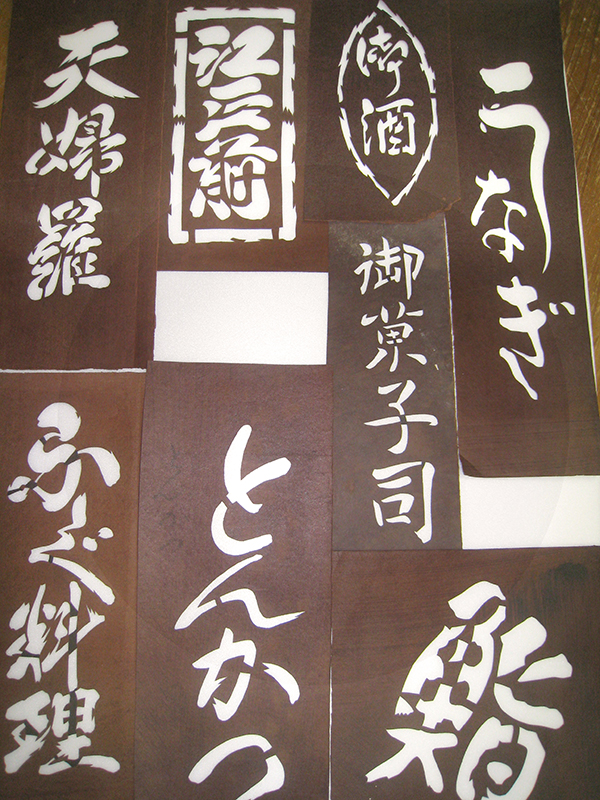 天婦羅
江戸前
御酒
うなぎ
御菓子司
ふぐ料理
とんかつ
鮨